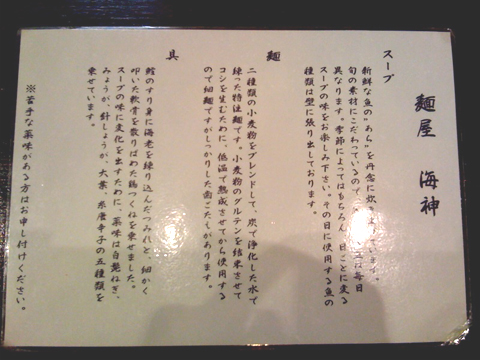 麺屋 海神
スープ
新鮮な魚の"あら"を丹念に炊
旬の素材にこだわっているので、 は毎日
異なります。季節によってはもちろん 日ごとに変る
スープの味をお楽しみ下さい。その日に使用する魚の
種類は壁に張り出しております。
麺
二種類の小麦粉をブレンドして、炭で浄化した水で
練った特注麺です。小麦粉のグルテンを結束させて
コシを生むために、低温で熟成させてから使用する
ので細麺ですがしっかりした歯ごたえがあります。
具
鱈のすり身に海老を練り込んだつみれと、細かく
叩いた軟骨を散りばめた鶏つくねを乗せました。
スープの味に変化を出すために、薬味は白髭ねぎ、
みょうが、針しょうが、大葉、糸唐辛子の五種類を
乗せています。
※苦手な薬味がある方はお申し付けください。